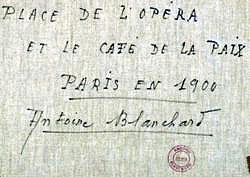 PLACE DE L'OPÉRA
ET LE CAFÉ DE LA PAIX
PARIS EN 1900
Antoine Blanchard